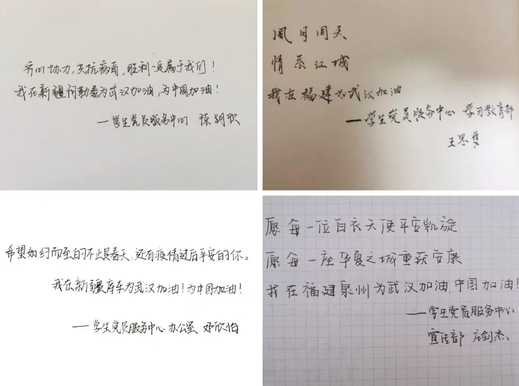 齐心协力,共抗病毒,胜利返属于我们!
我在新疆阿勒泰为武汉加油,为中国加油!
——学生党员服务中心
风月同天
情系江城
我在福建为武汉加油
——学生党员服务中心 学习教育部
王思梦
希望如约而至的不止是春天,还有疫情过后平安的你。
我在新疆库车为武汉加油!为中国加油!
——学生党员服务中心 办公室 邓欣怡
愿每一位白衣天使平安凯旋
愿每一座华夏之城重获安康
我在福建泉州为武汉加油 中国加油!
——学生党员服务中心
宣传部